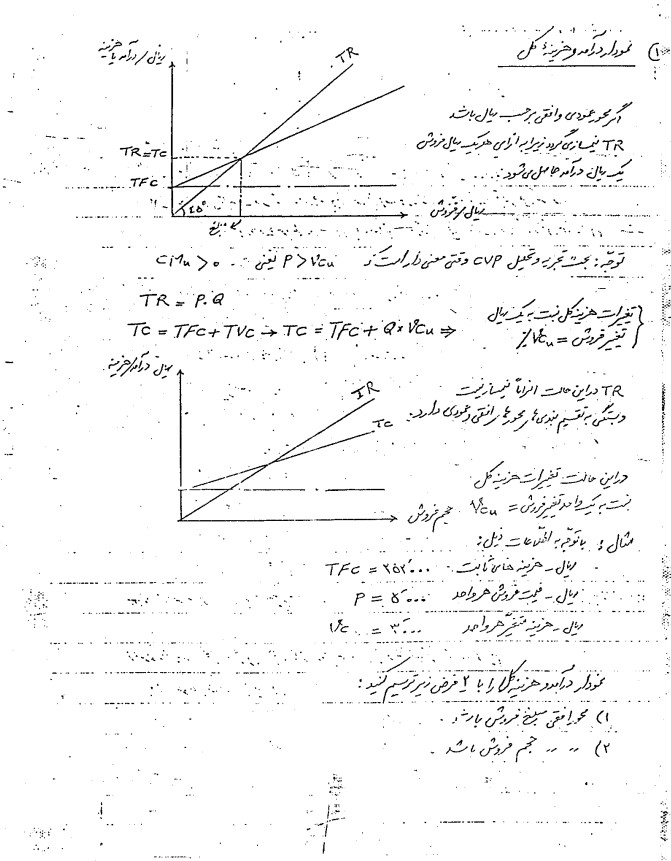 ۱) نمودار درآمد و هزینهٔ کل
ریال / درآمد یا هزینه
TR
TR=TC
TFC
45°
ریال / فروش
مبلغ
اگر محور عمودی و افقی برحسب ریال باشد
TR نیمساز می‌گردد زیرا به ازای هر یک ریال فروش
یک ریال درآمد حاصل می‌شود.
توجّه: بحث تجزیه و تحلیل CVP وقتی معنی دار است که P > Vcu یعنی CMu > 0
TR = P.Q
TC = TFC + TVC → TC = TFC + Q × Vcu ⇒
تغییرات هزینه کل نسبت به یک ریال
تغییر فروش = Vcu%
ریال درآمد/هزینه
TR
TC
حجم فروش
TR در این حالت الزاماً نیمساز نیست
و بستگی به تقسیم بندی محورهای افقی و عمودی دارد.
در این حالت تغییرات هزینه کل
نسبت به یک واحد تغییر فروش = Vcu
مثال: با توجّه به اطّلاعات ذیل:
ریال - هزینه های ثابت TFC = ۲۵۲٬۰۰۰
ریال - قیمت فروش هر واحد P = ۵٬۰۰۰
ریال - هزینه متغیّر هر واحد Vc = ۳٬۰۰۰
نمودار درآمد و هزینه کل را با ۲ فرض زیر ترسیم کنید:
۱) محور افقی مبلغ فروش باشد.
۲) ,, ,, حجم فروش باشد.